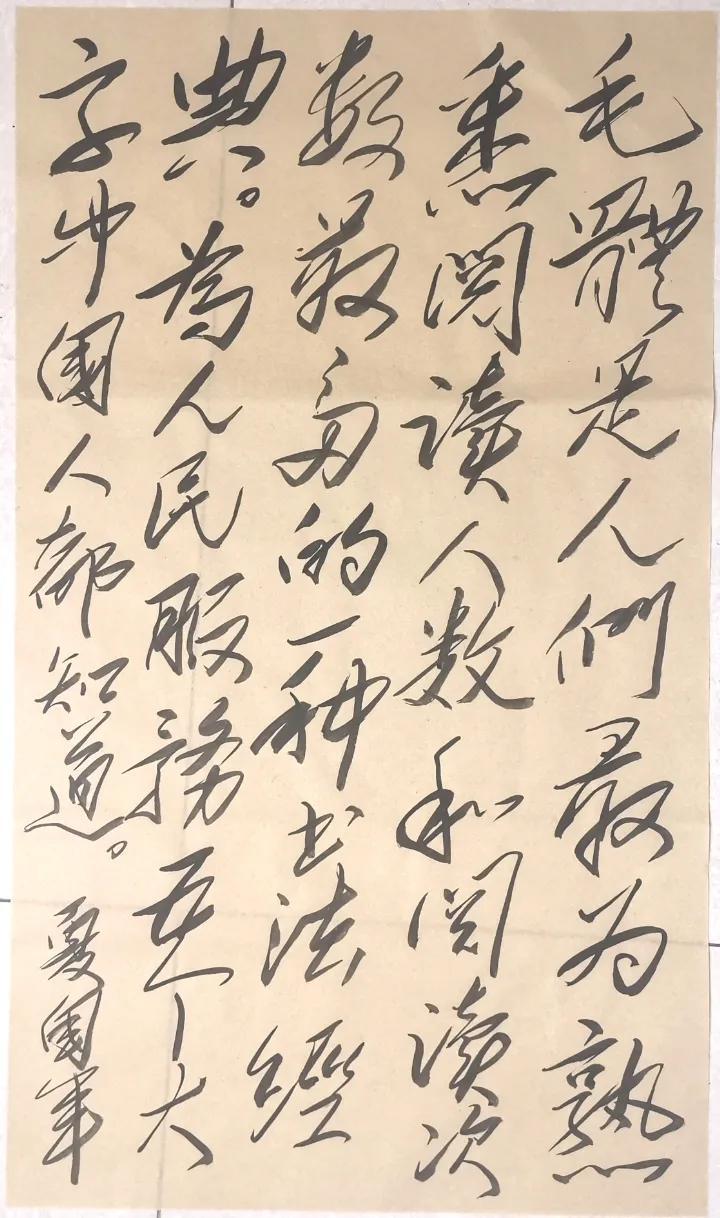 毛體是人們最为熟
悉阅读人数和阅读次
数最多的一种书法經
典。為人民服務五个大
字中國人都知道。夏國軍